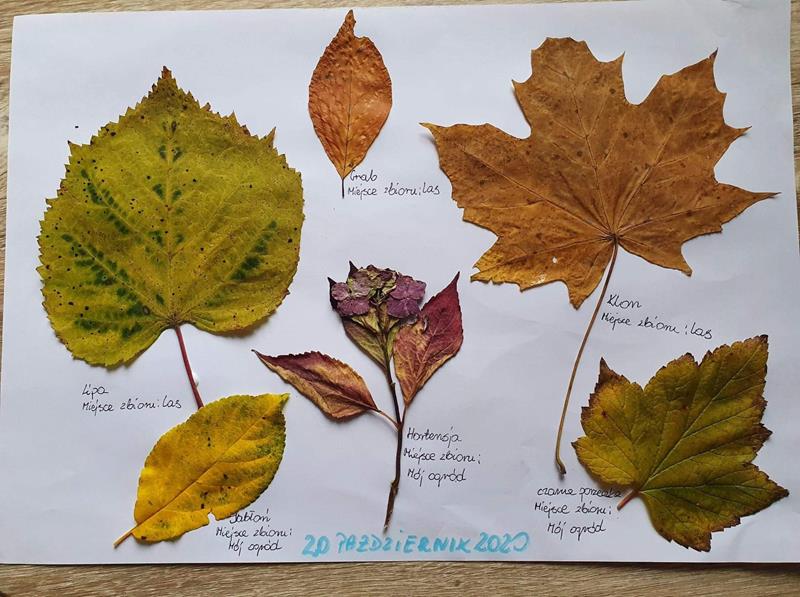 Grab
Miejsce zbioru: las
Klon
Miejsce zbioru: las
Lipa
Miejsce zbioru: las
Hortensja
Miejsce zbioru:
Mój ogród
czarna porzeczka
Miejsce zbioru:
Mój ogród
Jabłoń
Miejsce zbioru:
Mój ogród
20 PAŹDZIERNIK 2020